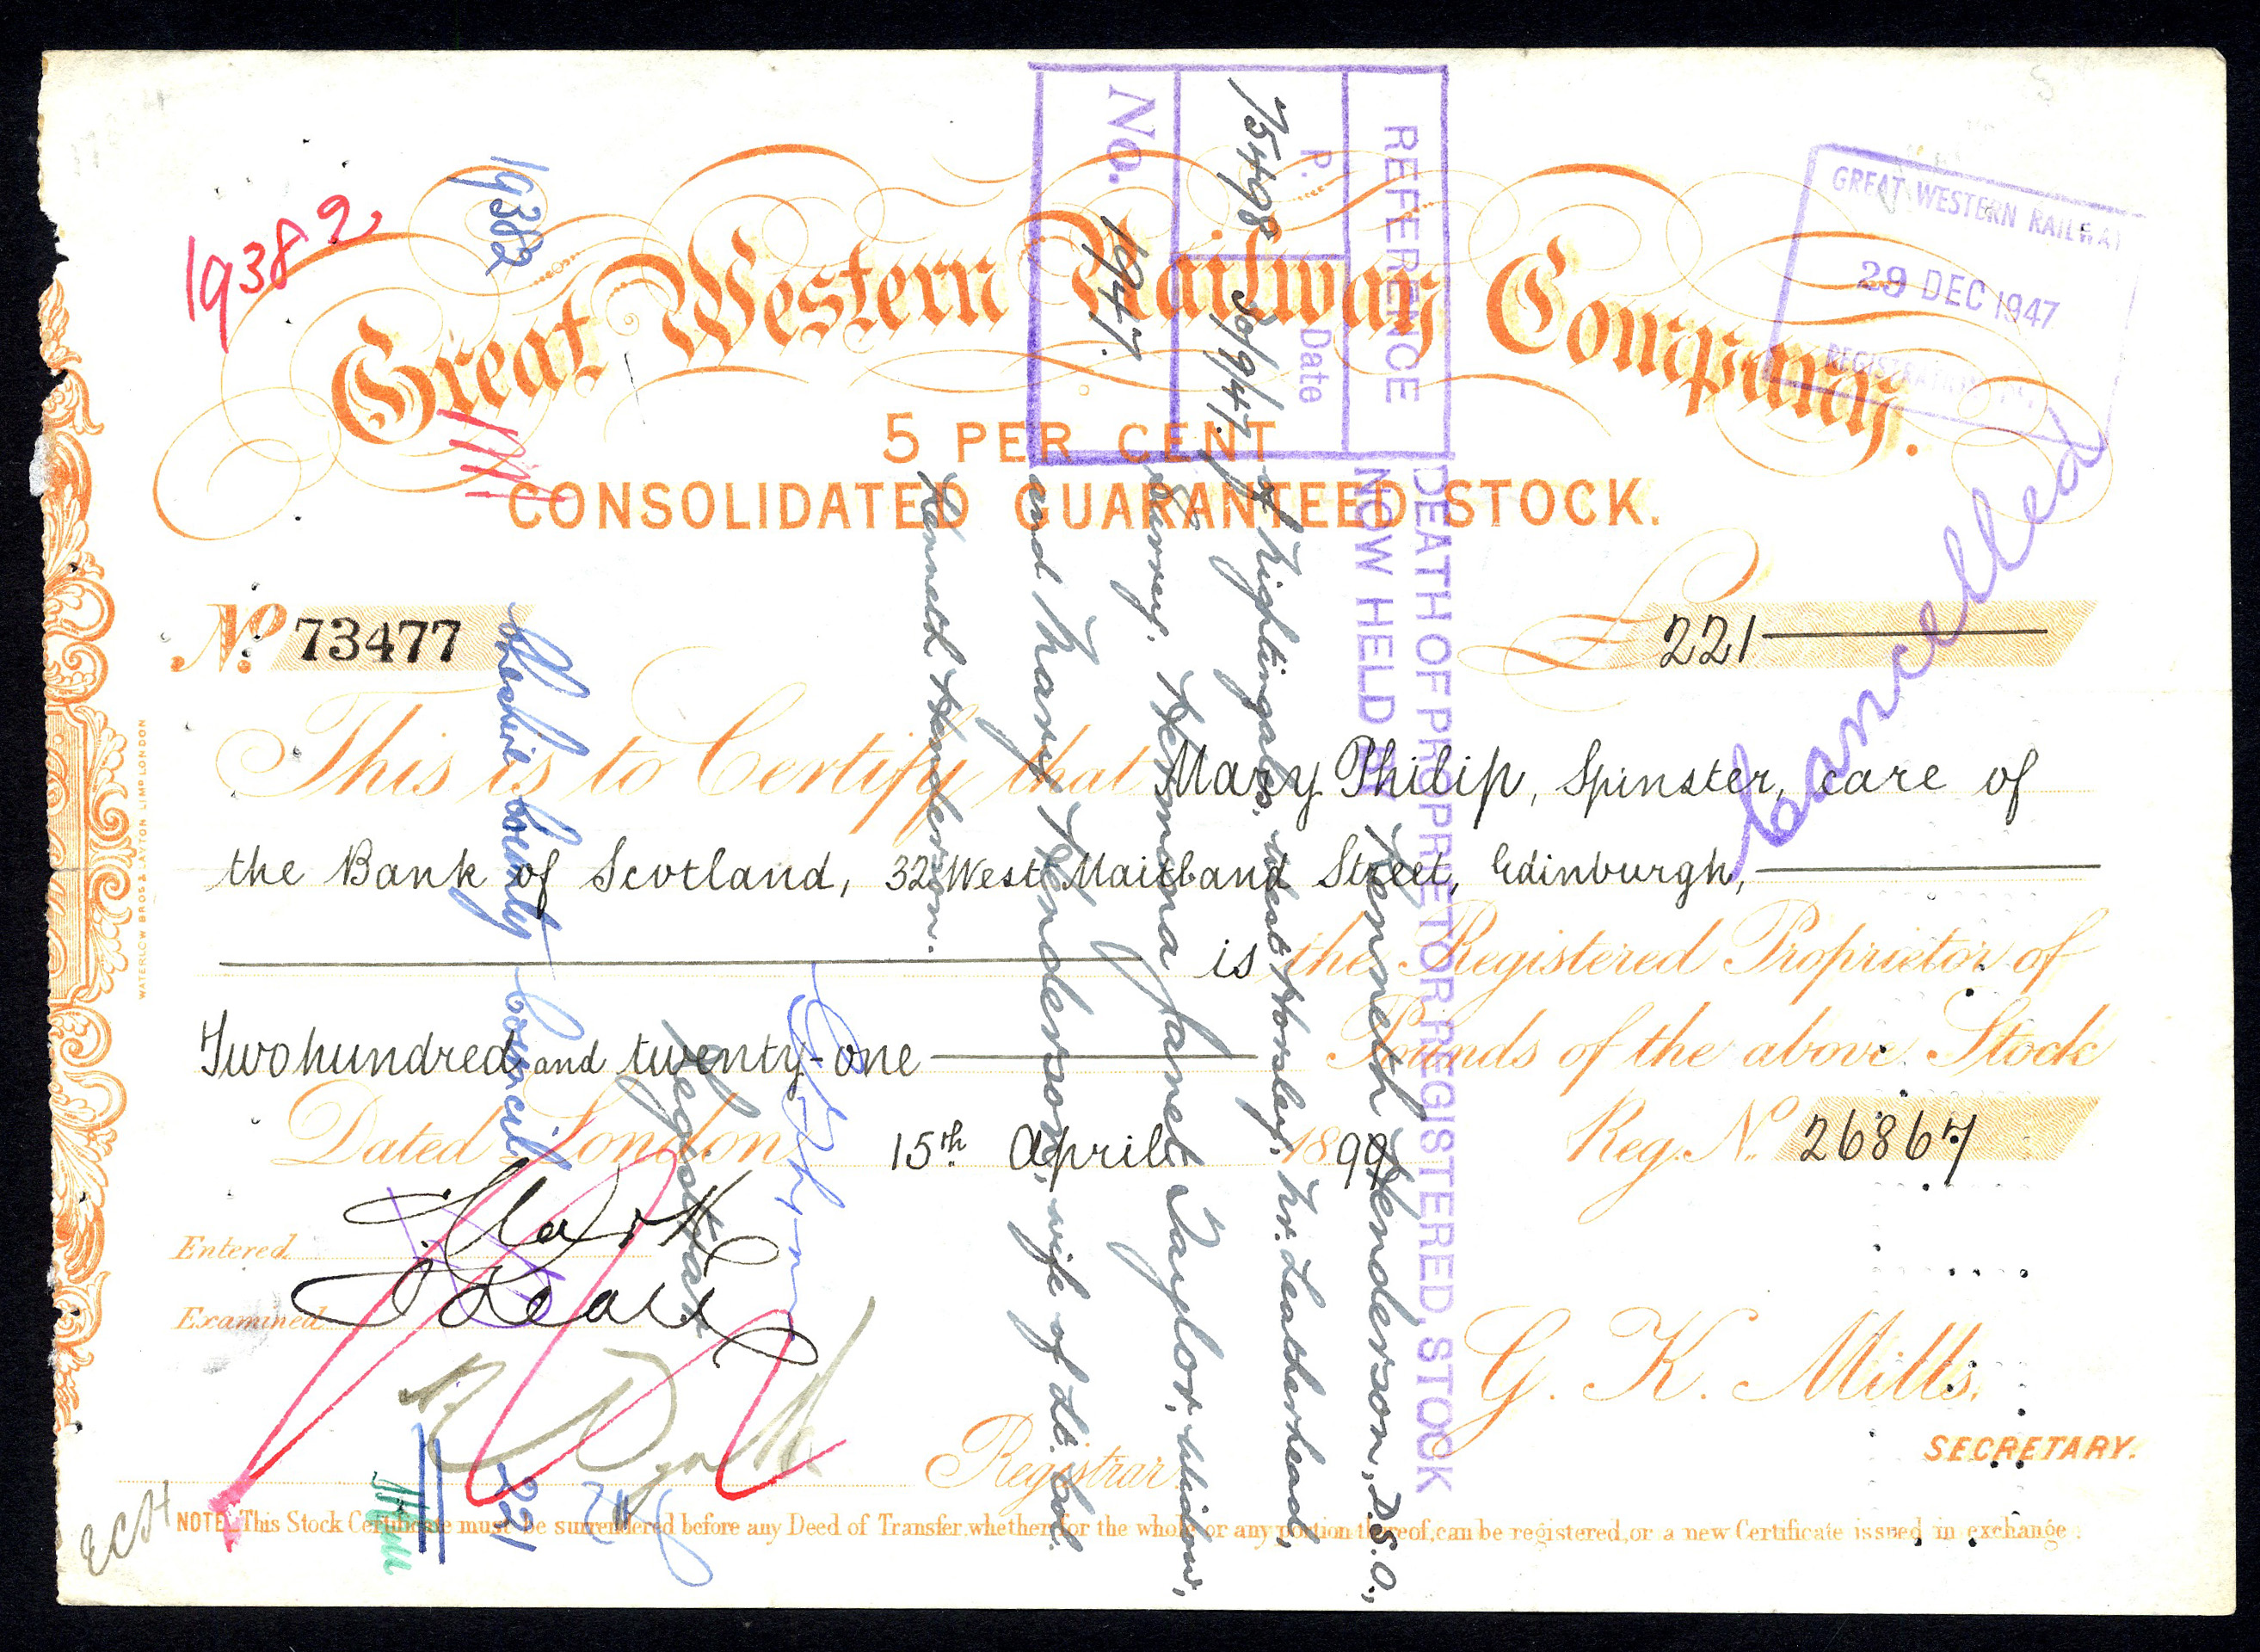 Great Western Railway Company.
5 PER CENT
CONSOLIDATED GUARANTEED STOCK.
No. 73477
£ 221
This is to Certify that Mary Philip, Spinster, care of
the Bank of Scotland, 32 West Maitland Street, Edinburgh,
is the Registered Proprietor of
Two hundred and twenty-one Pounds of the above Stock
Dated London 15th April 1899
Reg. No. 26867
Entered
Examined
G. K. Mills,
SECRETARY.
Registrar.
NOTE. This Stock Certificate must be surrendered before any Deed of Transfer, whether for the whole or any portion thereof, can be registered, or a new Certificate issued in exchange.
WATERLOW BROS & LAYTON LIMD LONDON
19382
19382
GREAT WESTERN RAILWAY
29 DEC 1947
Cancelled
REFERENCE
P. Date
75498 30/9/47
No. 1947.
DEATH OF PROPRIETOR REGISTERED, STOCK
NOW HELD BY Kenneth Henderson, D.S.O.,
of Nightingales, West Horsley, Nr. Leatherhead,
Surrey, Hermina Janet Taylor, Widow,
and Mary Henderson, wife of Lt. Col.
Kenneth Henderson.
Registrar
County Council
221
ECH